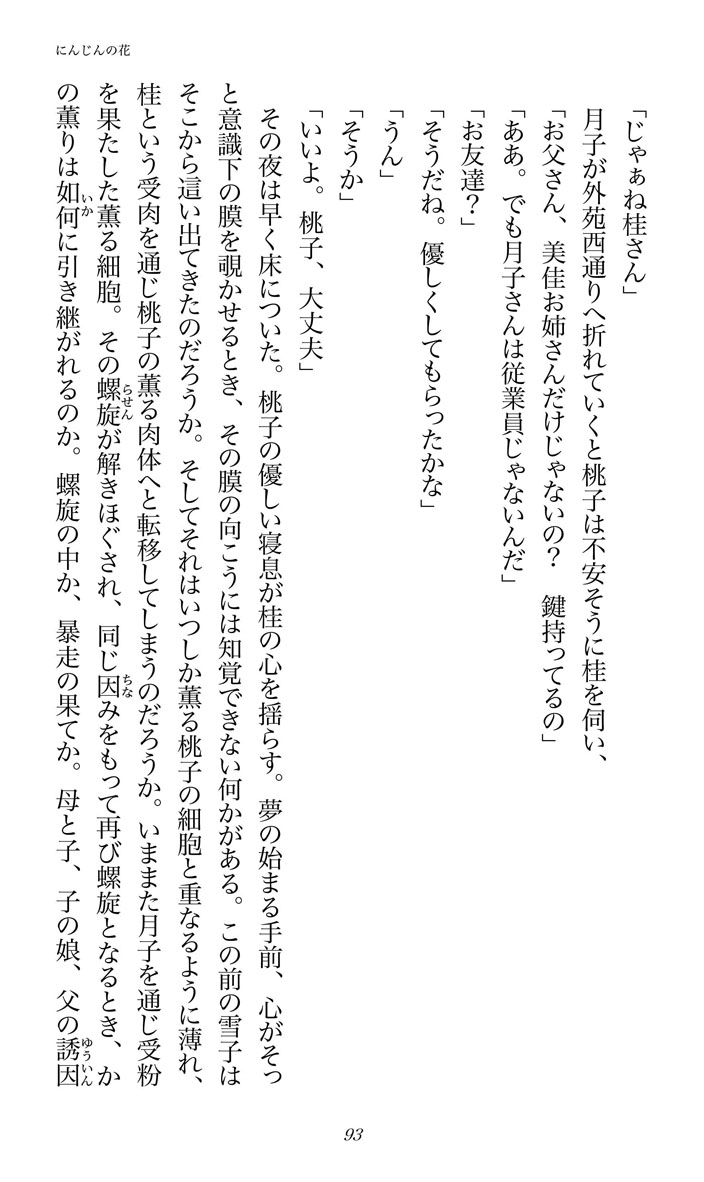 にんじんの花
「じゃぁね桂さん」
月子が外苑西通りへ折れていくと桃子は不安そうに桂を伺い、
「お父さん、美佳お姉さんだけじゃないの？　鍵持ってるの」
「ああ。でも月子さんは従業員じゃないんだ」
「お友達？」
「そうだね。優しくしてもらったかな」
「うん」
「そうか」
「いいよ。桃子、大丈夫」
その夜は早く床についた。桃子の優しい寝息が桂の心を揺らす。夢の始まる手前、心がそっ
と意識下の膜を覗かせるとき、その膜の向こうには知覚できない何かがある。この前の雪子は
そこから這い出てきたのだろうか。そしてそれはいつしか薫る桃子の細胞と重なるように薄れ、
桂という受肉を通じ桃子の薫る肉体へと転移してしまうのだろうか。いままた月子を通じ受粉
を果たした薫る細胞。その螺旋が解きほぐされ、同じ因みをもって再び螺旋となるとき、か
の薫りは如何に引き継がれるのか。螺旋の中か、暴走の果てか。母と子、子の娘、父の誘因
いか
らせん
ちな
ゆういん
93